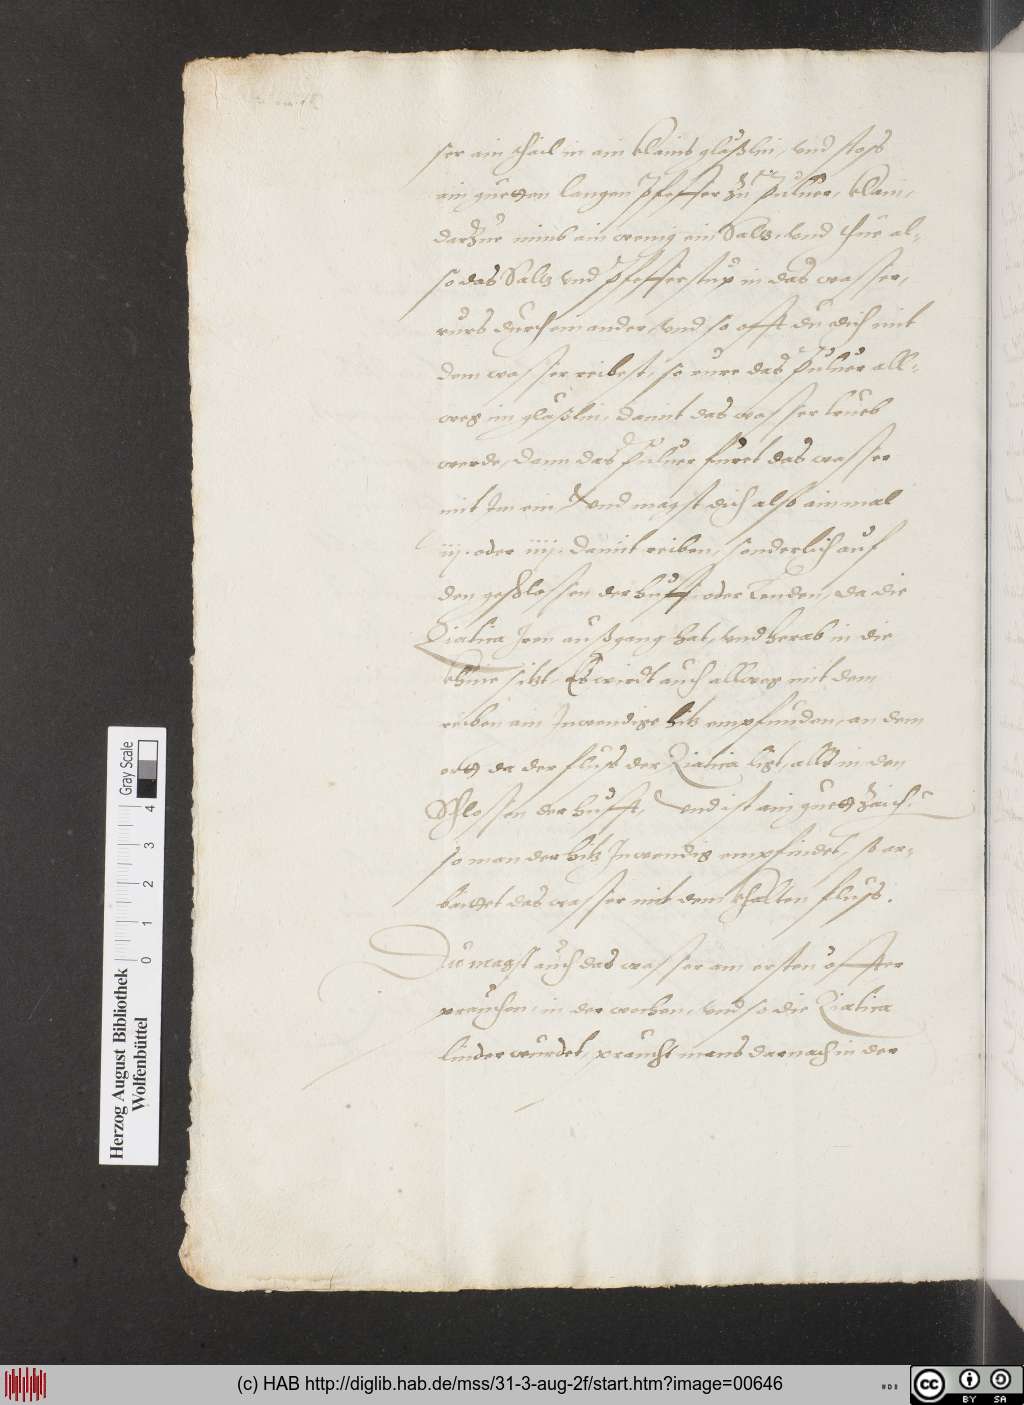 ser ain thail in ain klains gläßlin, vnd stoss
ain guetten langen Pfeffer zu Puluer, klain,
darzue nimb ain wenig ein Saltz, vnd thue al-
so das Saltz vnd Pfefferstup in das wasser,
rurs durch ain ander, vnd so offt du dich mit
dem wasser reibest, so rure das Puluer all-
weg im gläßlin, damit das wasser trueb
werde, dann das Puluer furet das wasser
mit Im ein, vnd magst dich also ain mal
iij. oder iiij. damit reiben, sonderlich auf
den geschlossen der hufft oder Lenden, da die
Ziatica Iren außgang hat, vnd herab in die
khnie sitzt, Es wirdt auch allweg mit dem
reiben ain Inwendige hitz empfunden, an dem
ortt da der fluss der Ziatica ligt, allt in den
Schlossen der hufft, vnd ist ain guett zaich:
so man der hitz Inwendig empfindet, so ar-
baittet das wasser mit dem khallten fluss.
Du magst auch das wasser am ersten öffter
prauchen, in der wochen, vnd so die Ziatica
linder wurdet, praucht mans darnach in der
Herzog August Bibliothek
Wolfenbüttel
0 1 2 3 4
Gray Scale
(c) HAB http://diglib.hab.de/mss/31-3-aug-2f/start.htm?image=00646
cc BY SA